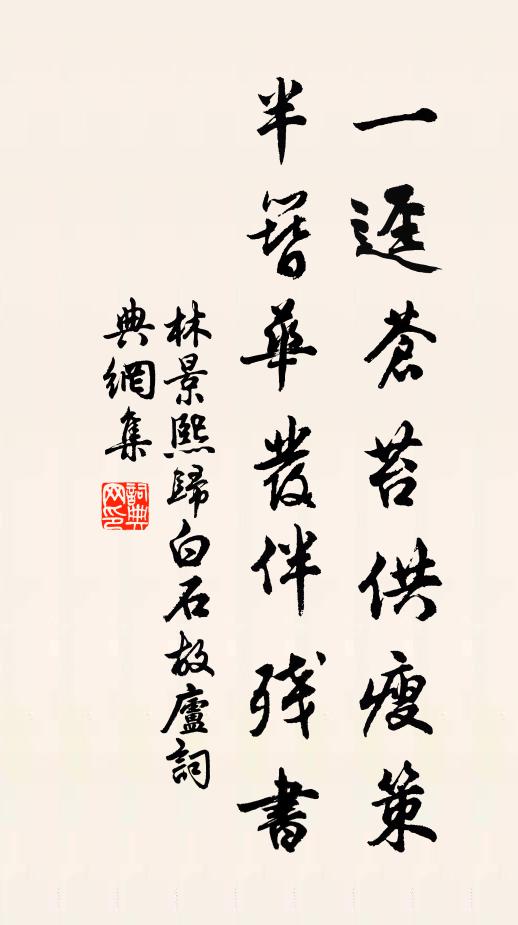 一逕蒼苔供瘦策
半簪華髮伴殘書
林景熙歸白石故廬詞
典網集
詞典網印